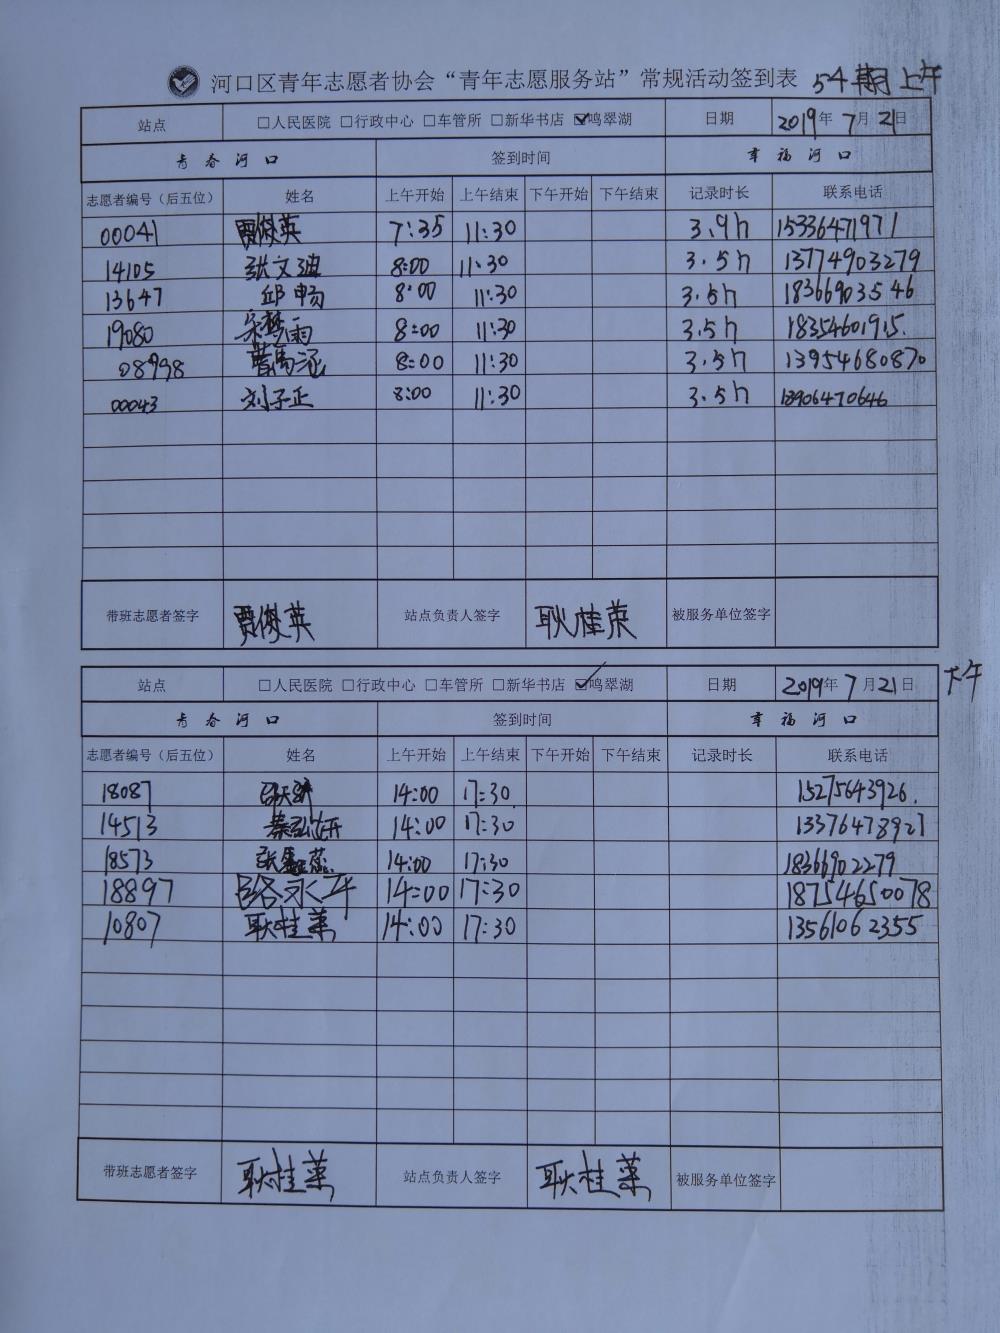 河口区青年志愿者协会“青年志愿服务站”常规活动签到表 54期上午
站点 □人民医院 □行政中心 □车管所 □新华书店 ☑鸣翠湖 日期 2019年7月21日
青春河口 签到时间 幸福河口
志愿者编号（后五位） 姓名 上午开始 上午结束 下午开始 下午结束 记录时长 联系电话
00041 贾俊英 7:35 11:30 3.9h 15336471971
14105 张文迪 8:00 11:30 3.5h 13774903279
13647 邱畅 8:00 11:30 3.5h 18366903546
19080 宋梦雨 8:00 11:30 3.5h 18354601915.
08998 曹禹涵 8:00 11:30 3.5h 13954680870
00043 刘子正 8:00 11:30 3.5h 18906470646
带班志愿者签字 贾俊英 站点负责人签字 耿桂荣 被服务单位签字
站点 □人民医院 □行政中心 □车管所 □新华书店 ☑鸣翠湖 日期 2019年7月21日 下午
青春河口 签到时间 幸福河口
志愿者编号（后五位） 姓名 上午开始 上午结束 下午开始 下午结束 记录时长 联系电话
18087 14:00 17:30 15275643926.
14513 秦弘妍 14:00 17:30 13376478927
18573 14:00 17:30 18366902279
18897 路永平 14:00 17:30 18754650078
10807 耿桂荣 14:00 17:30 13561062355
带班志愿者签字 耿桂荣 站点负责人签字 耿桂荣 被服务单位签字